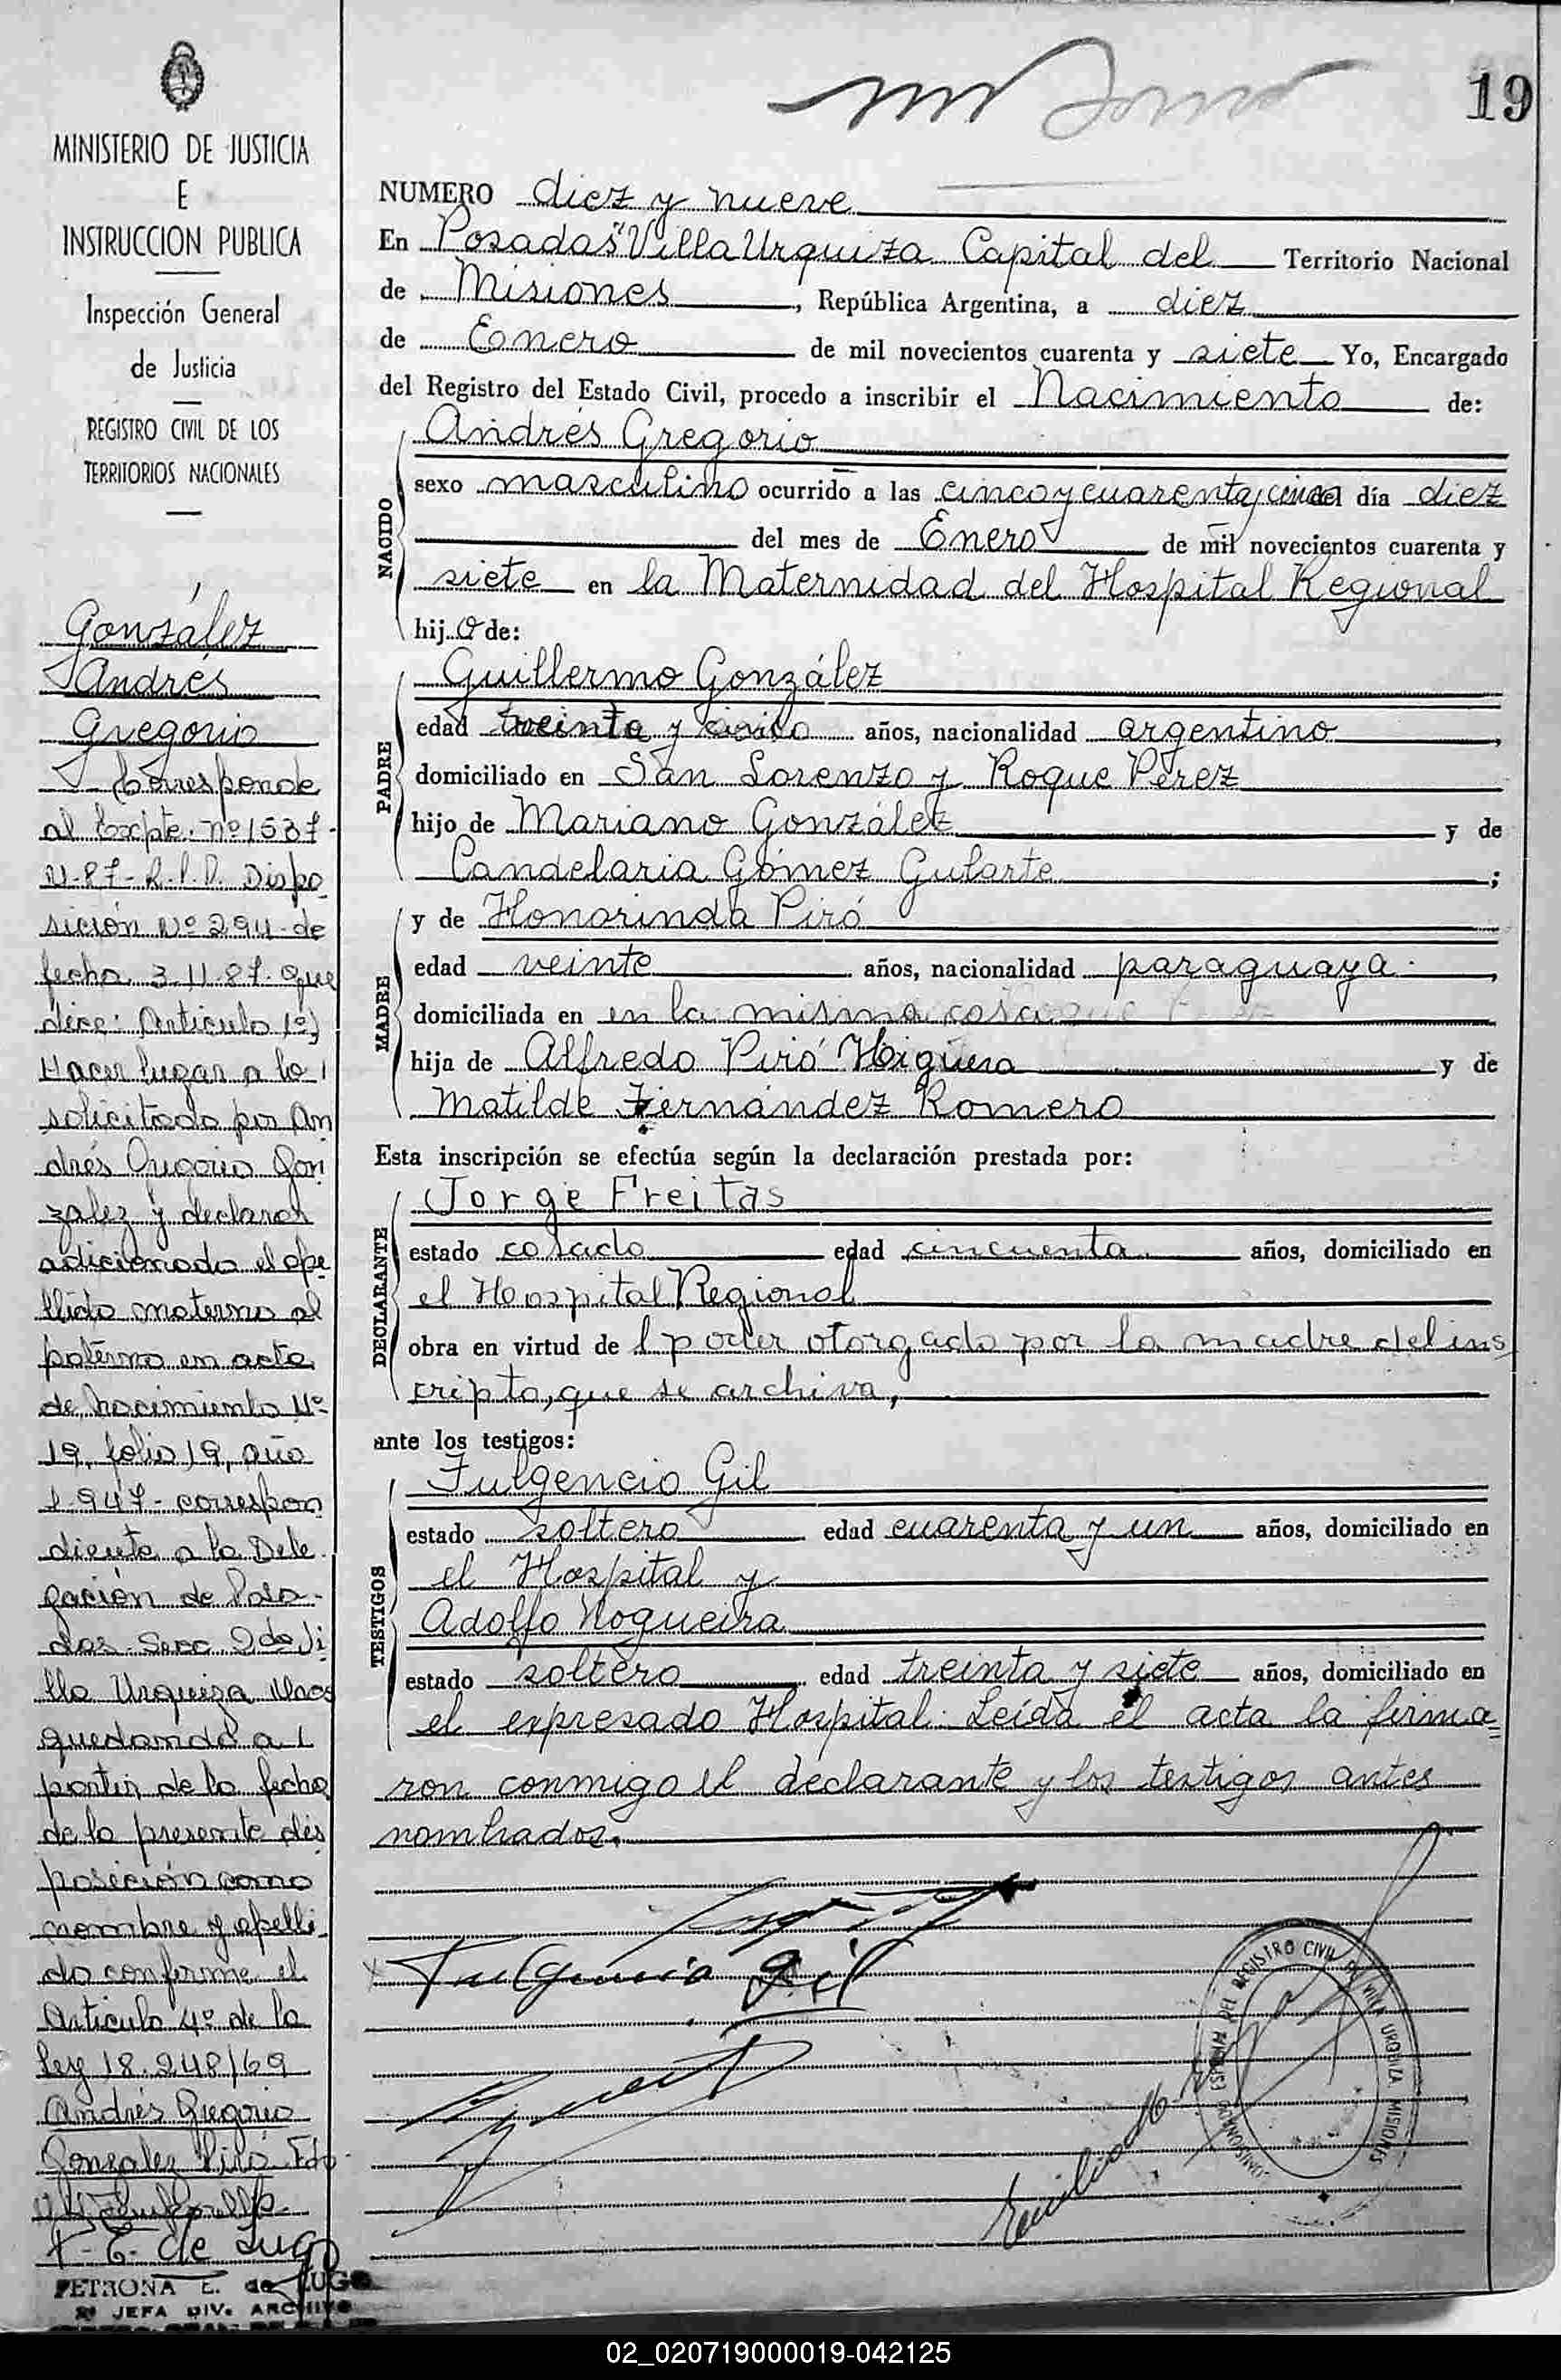 19
MINISTERIO DE JUSTICIA
E
INSTRUCCION PUBLICA
Inspección General
de Justicia
REGISTRO CIVIL DE LOS
TERRITORIOS NACIONALES
González
Andrés
Gregorio
Corresponde
al Expte. Nº 1537-
87- Dispo
sición Nº 294- de
fecha 3.11.87. que
dice: Artículo 1º)
Hacer lugar a lo
solicitado por An
drés Gregorio Gon
zalez y declarar
adicionado el ape
llido materno al
paterno en acta
de nacimiento Nº
19, folio 19, año
1.947- correspon
diente a la Dele
gación de Posa-
das- Secc 2da Vi
lla Urquiza
quedando a
partir de la fecha
de la presente dis
posición como
nombre y apelli
do conforme el
Artículo 4º de la
Ley 18.248/69
Andrés Gregorio
Gonzalez Piró Fdo
de Lugo
PETRONA E. de LUGO
JEFA DIV. ARCHIVO
NUMERO diez y nueve
En Posadas "Villa Urquiza Capital del Territorio Nacional
de Misiones, República Argentina, a diez
de Enero de mil novecientos cuarenta y siete Yo, Encargado
del Registro del Estado Civil, procedo a inscribir el Nacimiento de:
NACIDO
Andrés Gregorio
sexo masculino ocurrido a las cinco y cuarenta y cinco del día diez
del mes de Enero de mil novecientos cuarenta y
siete en la Maternidad del Hospital Regional
hijo de:
PADRE
Guillermo González
edad treinta y cinco años, nacionalidad argentino,
domiciliado en San Lorenzo y Roque Pérez
hijo de Mariano González y de
Candelaria Gómez Gularte;
MADRE
y de Honorinda Piró
edad veinte años, nacionalidad paraguaya,
domiciliada en en la misma casa
hija de Alfredo Piró Higuera y de
Matilde Fernández Romero
Esta inscripción se efectúa según la declaración prestada por:
DECLARANTE
Jorge Freitas
estado casado edad cincuenta años, domiciliado en
el Hospital Regional
obra en virtud de l poder otorgado por la madre del ins
cripto, que se archiva,
ante los testigos:
TESTIGOS
Fulgencio Gil
estado soltero edad cuarenta y un años, domiciliado en
el Hospital y
Adolfo Nogueira
estado soltero edad treinta y siete años, domiciliado en
el expresado Hospital. Leída el acta la firma=
ron conmigo el declarante y los testigos antes
nombrados.
Fulgencio Gil
DEL REGISTRO CIVIL DE VILLA URQUIZA MISIONES
02_020719000019-042125